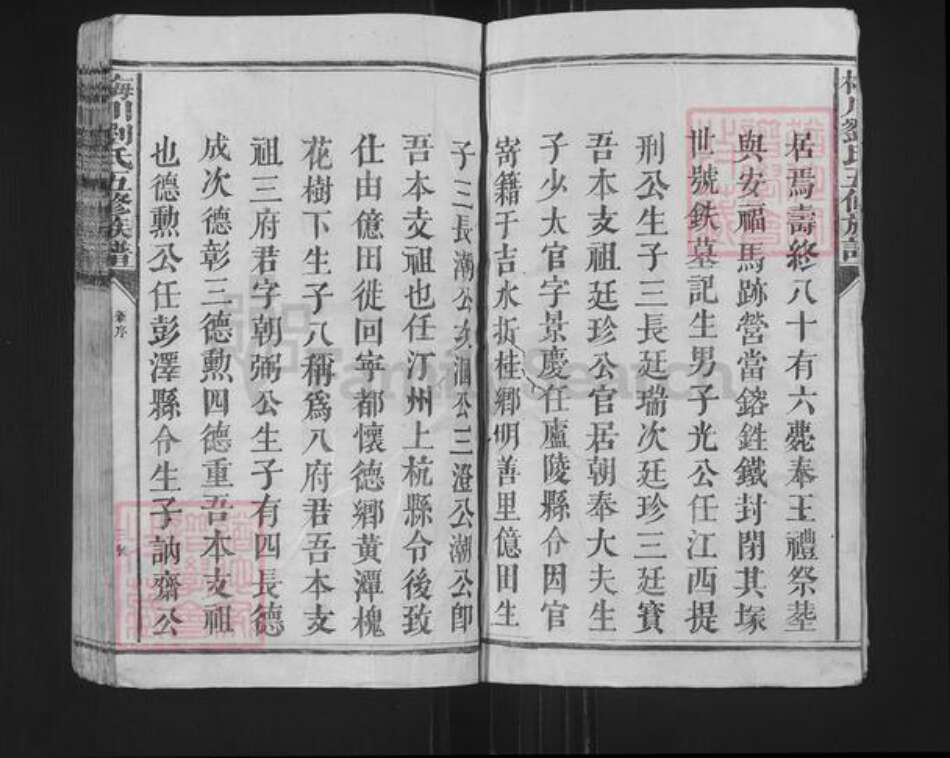 居焉壽終八十有六薨奉王禮祭塟
與安福馬跡營當鎔鉎鐵封閉其塚
世號鉄墓記生男子光公任江西提
刑公生子三長廷瑞次廷珍三廷賓
吾本支祖廷珍公官居朝奉大夫生
子少太官字景慶任廬陵縣令因官
寄籍于吉水折桂鄉明善里億田生
子三長潮公次洄公三澄公潮公卽
吾本支祖也任汀州上杭縣令後致
仕由億田徙回寧都懷德鄉黃潭槐
花樹下生子八稱爲八府君吾本支
祖三府君字朝弼公生子有四長德
成次德彰三德勲四德重吾本支祖
也德勲公任彭澤縣令生子訥齋公
梅川刘氏五修族譜
FamilySearch